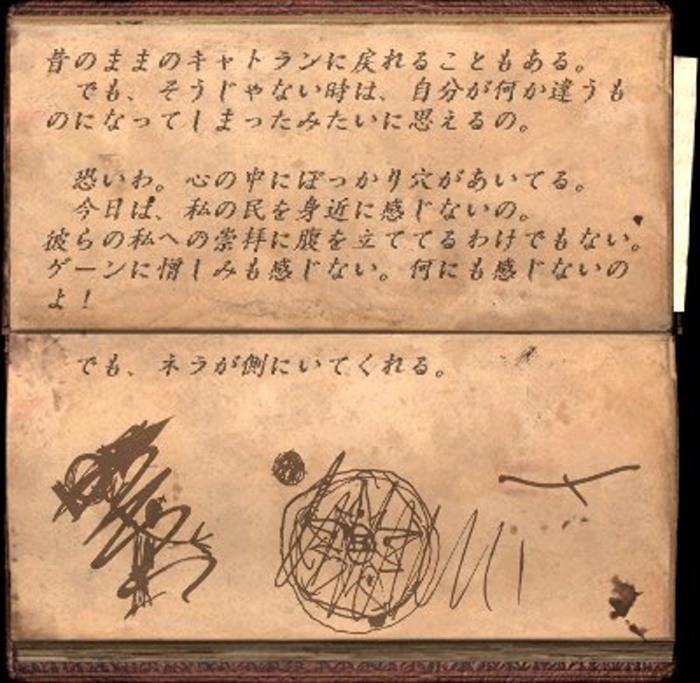 昔のままのキャトランに戻れることもある。
でも、そうじゃない時は、自分が何か違うも
のになってしまったみたいに思えるの。
恐いわ。心の中にぽっかり穴があいてる。
今日は、私の民を身近に感じないの。
彼らの私への崇拝に腹を立ててるわけでもない。
ゲーンに憎しみも感じない。何にも感じないの
よ！
でも、ネラが側にいてくれる。